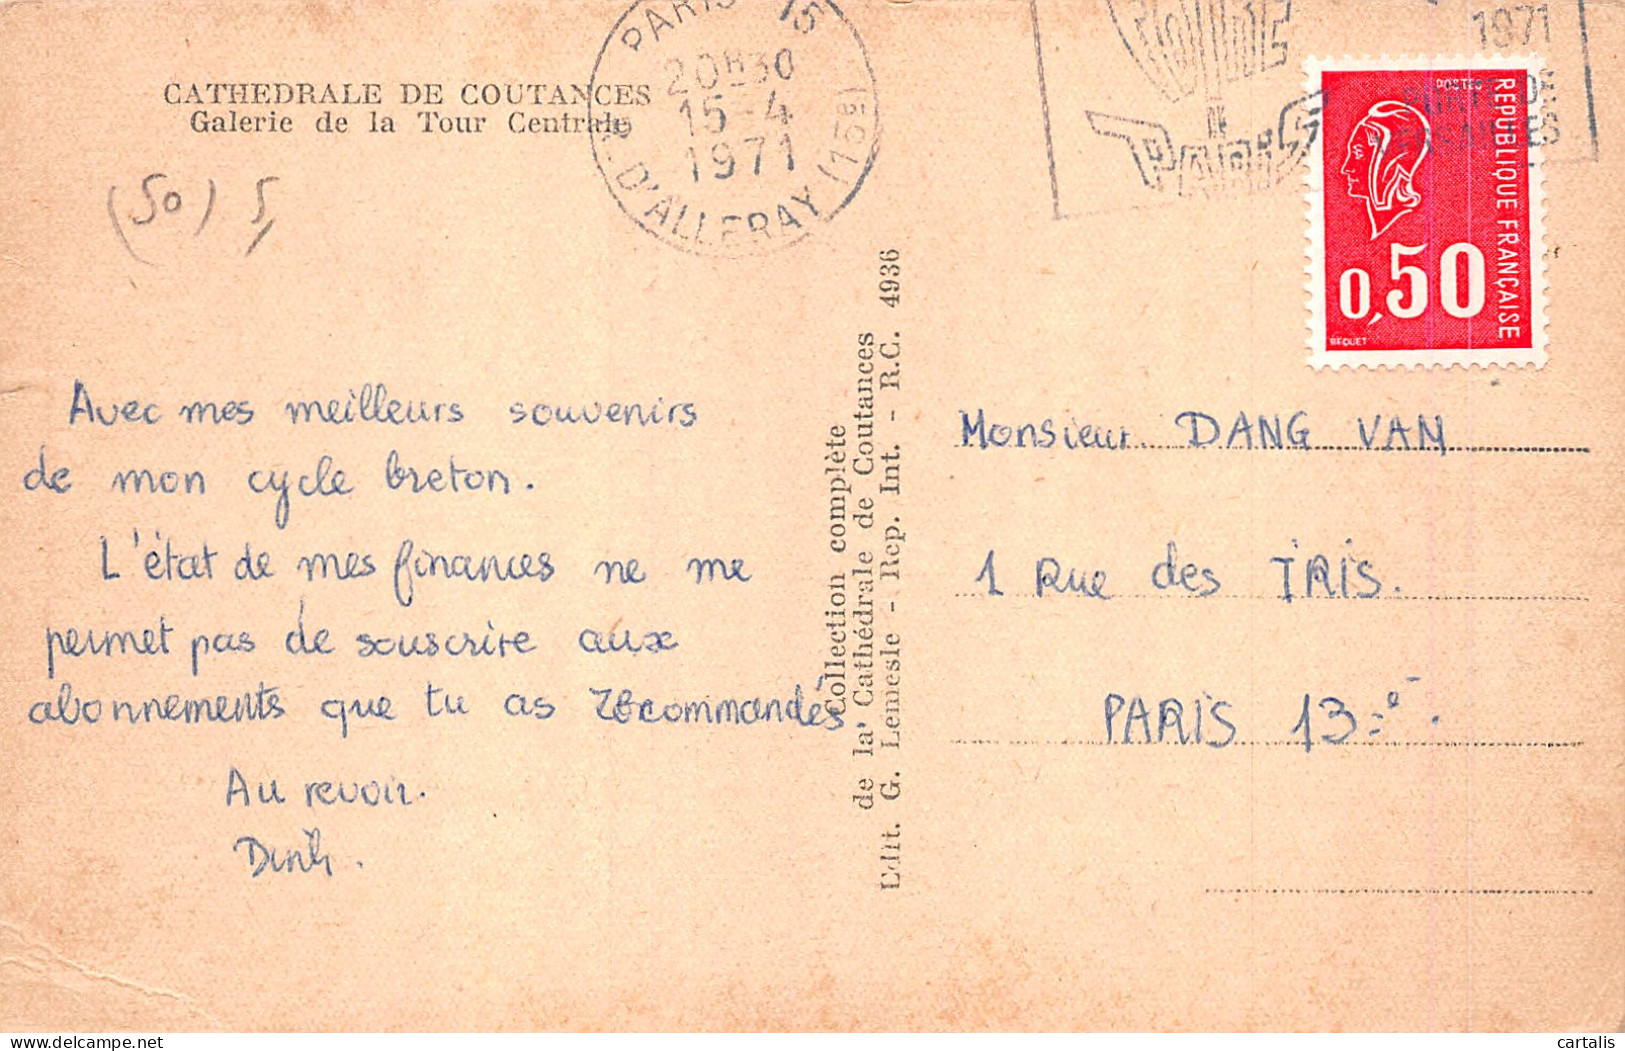 CATHEDRALE DE COUTANCES
Galerie de la Tour Centrale
(50) 5
PARIS 15
20H30
15-4
1971
R. D'ALLERAY (15e)
1971
PORTE DE
VERSAILLES
PARIS
POSTES
REPUBLIQUE FRANÇAISE
0,50
BEQUET
Avec mes meilleurs souvenirs
de mon cycle breton.
L'état de mes finances ne me
permet pas de souscrire aux
abonnements que tu as recommandés
Au revoir.
Dinh.
Collection complète
de la Cathédrale de Coutances
Edit. G. Lemesle - Rep. Int. - R.C. 4936
Monsieur DANG VAN
1 Rue des IRIS.
PARIS 13e.
cartalis